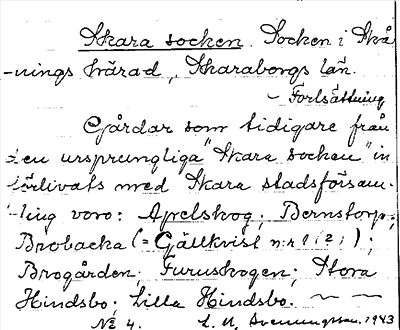 Skara socken. Socken i Skå
-nings härad, Skaraborgs län.
- Fortsättning
Gårdar som tidigare från
den ursprungliga "Skara socken" in
förlivats med Skara stadsförsam-
ling voro: Apelskog; Bernstorp;
Brobacka (= Gällkvist n:r 1, 2;);
Brogården; Furuskogen; Stora
Hindsbo; Lilla Hindsbo. — —
No 4. 1943